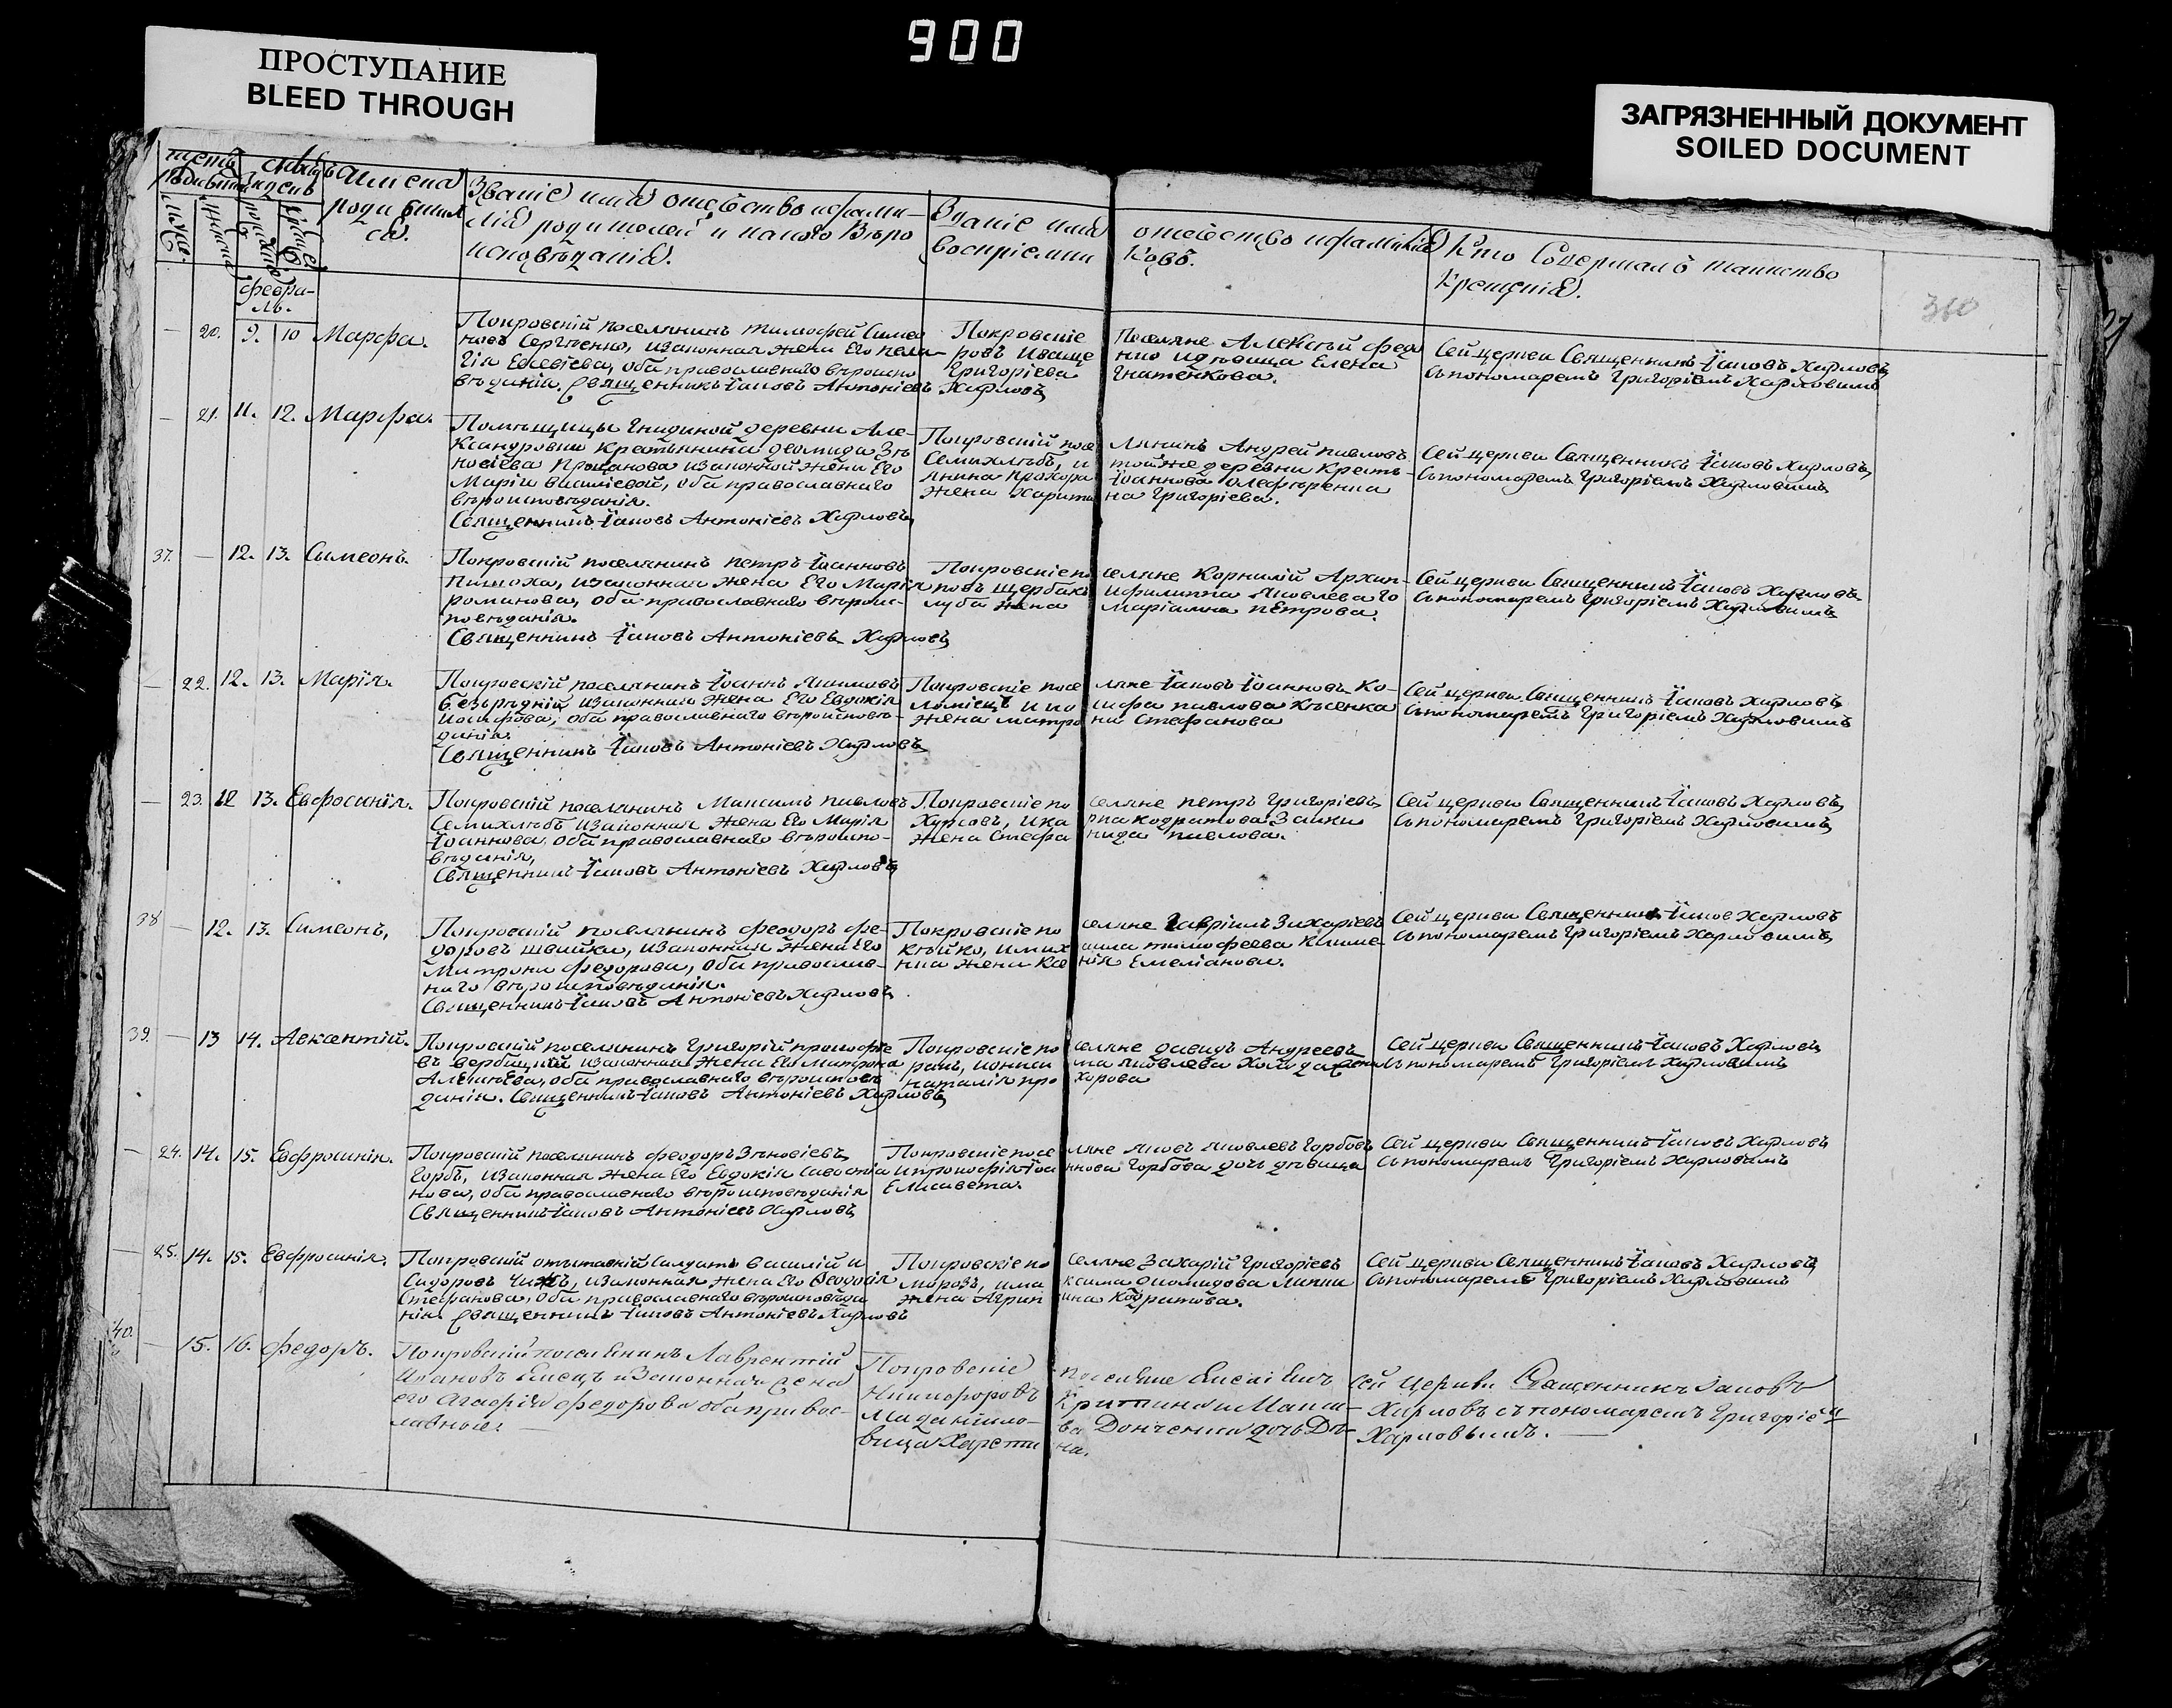 900
ПРОСТУПАНИЕ
BLEED THROUGH
ЗАГРЯЗНЕННЫЙ ДОКУМЕНТ
SOILED DOCUMENT
Имена
родивших
ся.
Званіе имя отечество и фами-
лія родителей и какого Веро
исповѣданія.
Званіе имя
воспріемни
отечество и фамилія
ковъ.
Кто Совершалъ таинство
Крещенія.
февра-
ль.
360
— 20. 9. 10 Марфа.
Покровскій поселянинъ тимофей Симео
новъ Сергіенко, и законная жена Его пела-
гія Евсевіева, оба православнаго вѣроиспо
вѣданія. Священникъ Іаковъ Антоніевъ Харловъ
Покровскіе
ровъ Иваще
Григоріева
Поселяне Алексѣй федо
нко и дѣвица Елена
Гнатенкова.
Сей церкви Священникъ Іаковъ Харловъ
съ пономаремъ Григоріемъ Харловымъ
— 21. 11. 12. Марфа.
Помѣщицы Гнидиной деревни Але-
ксандровки Крестьянина діомида Зѣ
новіева законной жены Его
Маріи василіевой, оба православнаго
вѣроисповѣданія.
Священникъ Іаковъ Антоніевъ Харловъ
Покровскій посе
Семихлѣбъ, и
янина Прохора
жена Харити
лянинъ Андрей павловъ
той же деревни Кресть-
Іоаннова Олеференка
на Григоріева.
Сей церкви Священникъ Іаковъ Харловъ
съ пономаремъ Григоріемъ Харловымъ
37. — 12. 13. Сымеонъ.
Покровскій поселянинъ петръ Іоанновъ
законная жена Его Марія
романова, оба православнаго вѣроис-
повѣданія.
Священникъ Іаковъ Антоніевъ Харловъ
Покровскіе по
повъ щербакъ
луба жена
селяне Корнилій Архип-
и филиппа Яковлева Го
Маріамна петрова.
Сей церкви Священникъ Іаковъ Харловъ
съ пономаремъ Григоріемъ Харловымъ
— 22. 12. 13. Марія.
Покровскій поселянинъ Іоаннъ Якимовъ
законная жена Его Евдокія
Иосифова, оба православнаго вѣроисповѣ-
данія.
Священникъ Іаковъ Антоніевъ Харловъ
Покровскіе посе
ломіецъ и ио
жена матро
ляне Іаковъ Іоанновъ Ко-
сифа павлова Косенка
на Стефанова
Сей церкви Священникъ Іаковъ Харловъ
съ пономаремъ Григоріемъ Харловымъ
— 23. 12 13. Евфросинія.
Покровскій поселянинъ Максимъ павловъ
Семихлѣбъ законная жена Его Марія
Іоаннова, оба православнаго вѣроиспо-
вѣданія,
Священникъ Іаковъ Антоніевъ Харловъ
Покровскіе по
Хурсовъ, и ка
жена Стефа
селяне петръ Григоріевъ
рпа кодратова Заики
нида павлова.
Сей церкви Священникъ Іаковъ Харловъ
съ пономаремъ Григоріемъ Харловымъ
38 — 12. 13. Симеонъ,
Покровскій поселянинъ феодоръ фе-
доровъ швайка, и законная жена Его
Матрона федорова, оба православ-
наго вѣроисповѣданія.
Священникъ Іаковъ Антоніевъ Харловъ
Покровскіе по
и мих
нка жена Ксе
селяне Гавріилъ Захаріевъ
аила тимофеева Климе-
нія Емеліанова.
Сей церкви Священникъ Іаков Харловъ
съ пономаремъ Григоріемъ Харловымъ
39. — 13 14. Авксентій.
Покровскій поселянинъ Григорій прокофіе
въ вербицкій законная жена Его Матрона
Алексіева, оба православнаго вѣроисповѣ
данія. Священникъ Іаковъ Антоніевъ Харловъ
Покровскіе по
наталія про
селяне давидъ Андреевъ
та Яковлева Холода жена
хорова
Сей церкви Священникъ Іаковъ Харловъ
съ пономаремъ Григоріемъ Харловымъ
— 24. 14. 15. Евфросинія.
Покровскій поселянинъ феодоръ Зѣновіевъ
Горбъ, и законная жена Его Евдокія Савостія
нова, оба православнаго вѣроисповѣданія
Священникъ Іаковъ Антоніевъ Харловъ
Покровскіе посе
и прокофія Іоа
Елисавета.
ляне Яковъ Яковлевъ Горбовъ
ннова Горбова дочь дѣвица
Сей церкви Священникъ Іаковъ Харловъ
съ пономаремъ Григоріемъ Харловымъ
— 25. 14. 15. Евфросинія.
Покровскій отставній Салдатъ василій и
Сидоровъ Чижъ, и законная жена Его Феодосія
Стефанова, оба православнаго вѣроисповѣда
нія Священникъ Іаковъ Антоніевъ Харловъ
Покровскіе по
морозъ, и ма
жена Агрип
селяне Захарій Григоріевъ
ксима диомидова Липки
ина Кодратова.
Сей церкви Священникъ Іаковъ Харловъ
съ пономаремъ Григоріемъ Харловымъ
40. — 15. 16. Федоръ.
Покровскій поселянинъ Лаврентій
Ивановъ и Законная жена
его Агафія Федорова оба правос-
лавные. —
Покровскіе
Никифоровъ
вица Харити
поселяне
ва Донченка дочь Дѣ-
на.
Сей Церкви Священникъ Іаковъ
Харловъ съ пономаремъ Григоріем
Харловымъ. —